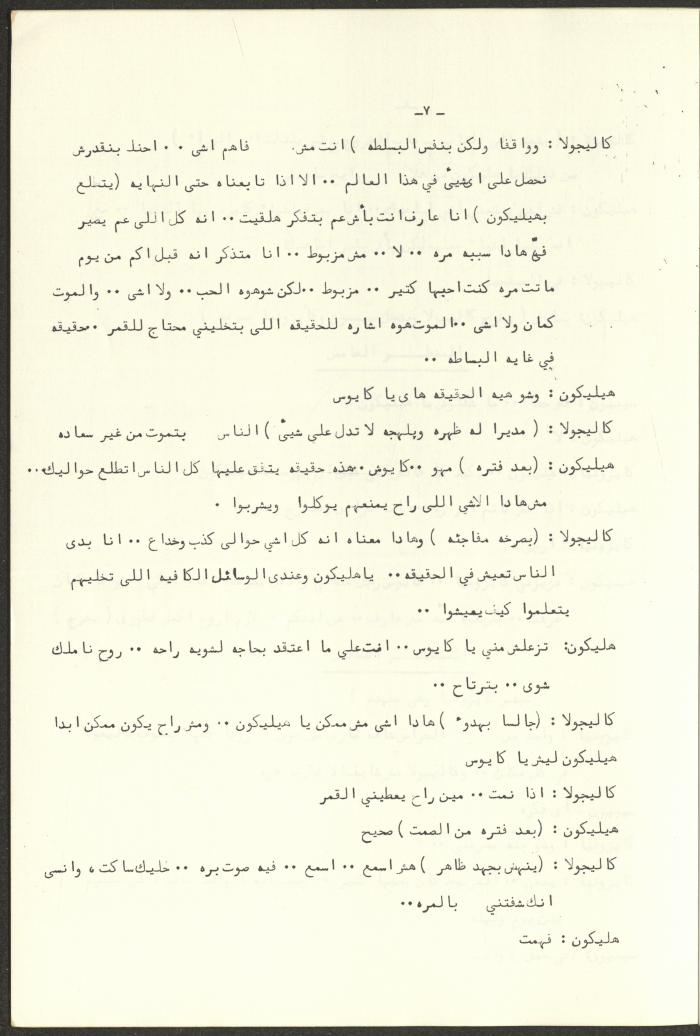 ـ ٧ـ
كاليجولا : وواقفا ولكن بنفس البسلطه ) انت مش فاهم اشى ٠٠ احنا بنقدرش
نحصل على اىشيئ في هذا العالم ٠٠ الا اذا تابعناه حتى النهايه ( يتطلع
بهيليكون ) انا عارف انت بأش عم بتفكر هلقيت ٠٠ انه كل اللى عم يصير
فيّ هادا سببه مره ٠٠ لا ٠٠ مش مزبوط ٠٠ انا متذكر انه قبل اكم من يوم
ماتت مره كنت احبها كتير ٠٠ مزبوط ٠٠ لكن شوهوه الحب ٠٠ ولا اشى ٠٠ والموت
كمان ولا اشى ٠٠ الموت هوه اشاره للحقيقه اللى بتخليني محتاج للقمر ٠ حقيقه
في غايه البساطه ٠٠
هيليكون : وشو هيه الحقيقه هاى يا كايوس
كاليجولا : ( مديرا له ظهره وبلهجه لا تدل على شيئ ) الناس بتموت من غير سعاده
هيليكون : (بعد فتره ) مهو ٠٠ كايوش ٠٠ هذه حقيقه يتفق عليها كل الناس اتطلع حواليك ٠٠٠
مش هادا الاشي اللى راح يمنعهم يوكلوا ويشربوا ٠
كاليجولا : (بصرخه مفاجئه ) وهادا معناه انه كل اشي حوالى كذب وخداع ٠٠ انا بدى
الناس تعيش في الحقيقه ٠٠ يا هليكون وعندى الوسائل الكافيه اللى تخليهم
يتعلموا كيف يعيشوا ٠٠
هليكون: تزعلش مني يا كايوس ٠٠ انت على ما اعتقد بحاجه لشويه راحه ٠٠ روح نا ملك
شوى ٠٠ بترتاح ٠٠
كاليجولا : (جالسا بهدوء ) هادا اشى مش ممكن يا هيليكون ٠٠ ومش راح يكون ممكن ابدا
هيليكون ليش يا كايوس
كاليجولا : اذا نمت ٠٠ مين راح يعطيني القمر
هيليكون : (بعد فتره من الصمت ) صحيح
كاليجولا : (ينهش بجهد ظاهر ) هش اسمع ٠٠ اسمع ٠٠ فيه صوت بره ٠٠ خليك ساكت، وانسى
انك شفتني بالمره ٠٠
هليكون : فهمت